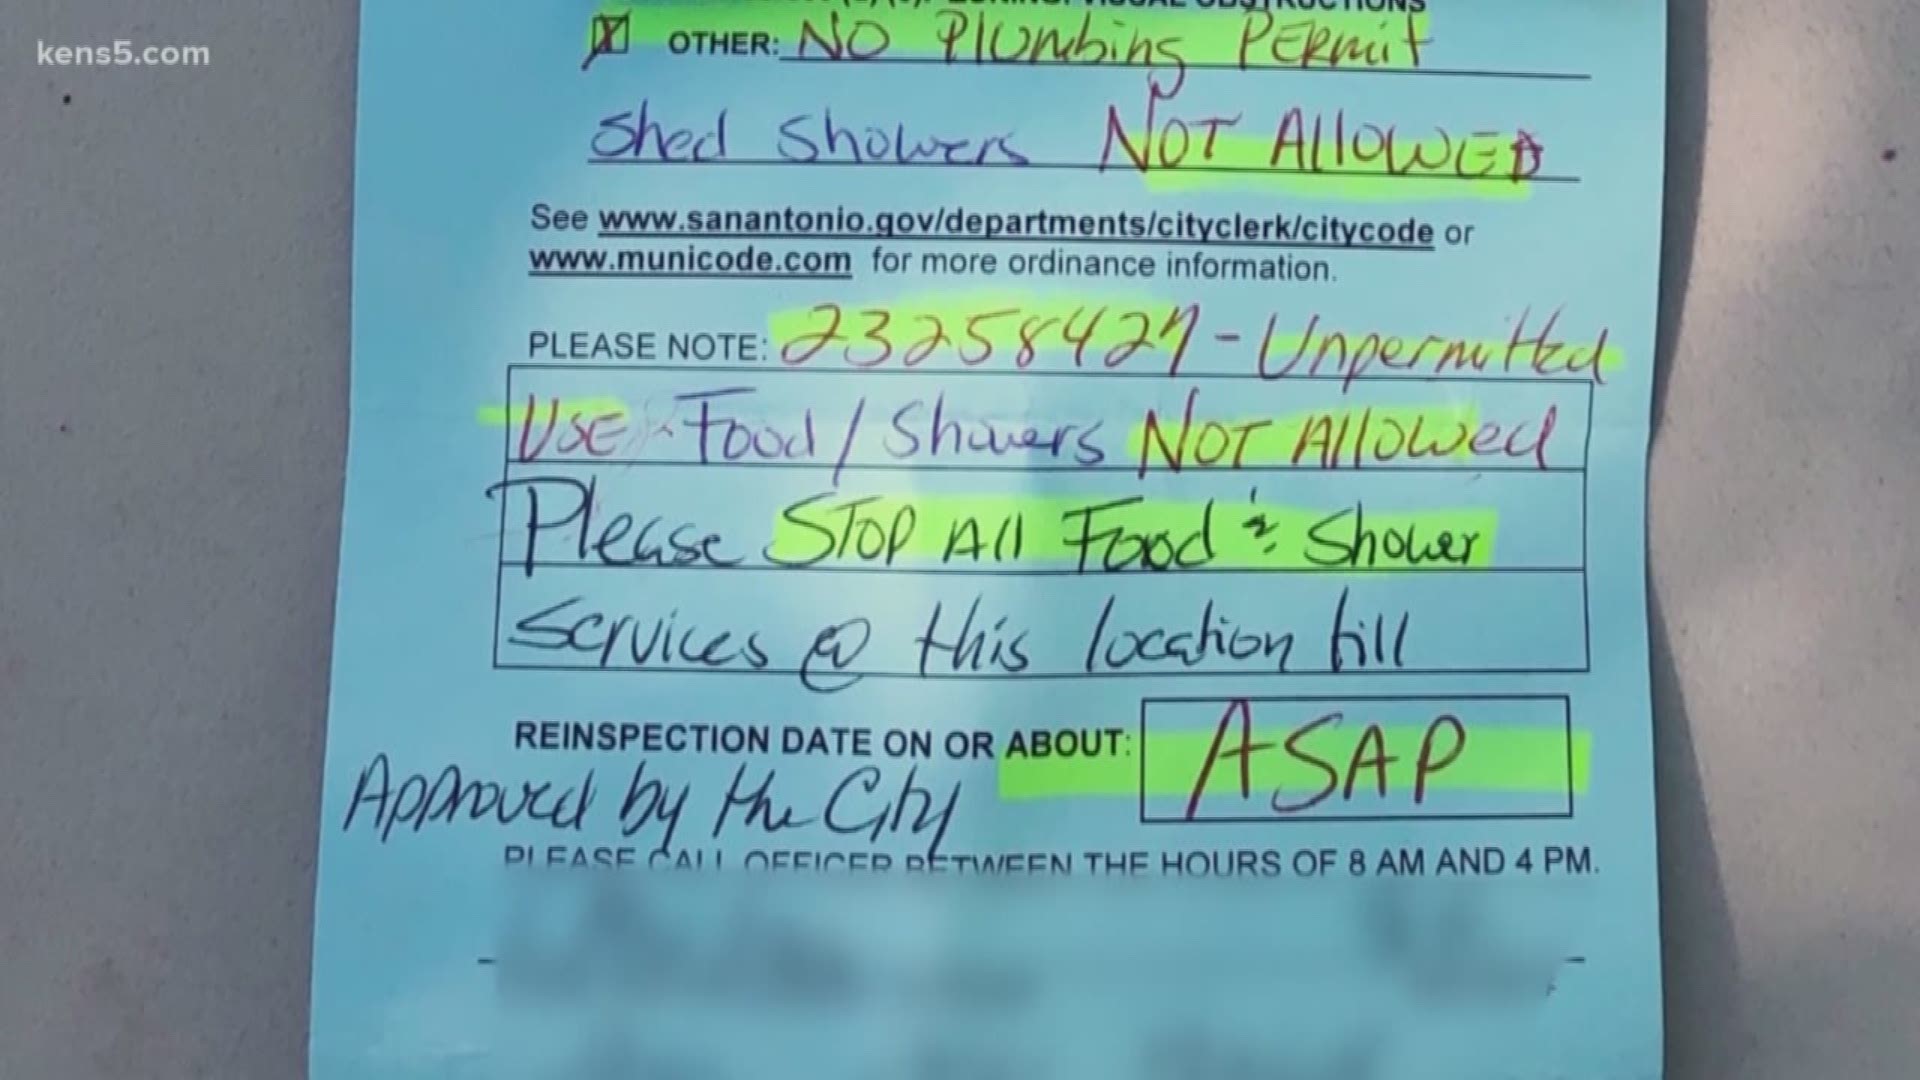 kens5.com
OTHER: NO Plumbing PERmit
Shed Showers NOT AllOWED
See www.sanantonio.gov/departments/cityclerk/citycode or
www.municode.com for more ordinance information.
PLEASE NOTE: 23258427 - Unpermitted
USE Food / Showers NOT AllOWed
Please STOP All Food & Shower
Services @ this location till
REINSPECTION DATE ON OR ABOUT: ASAP
Approved by the City
PLEASE CALL OFFICER BETWEEN THE HOURS OF 8 AM AND 4 PM.